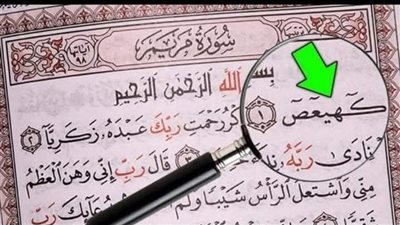 سُورَةُ مَرْيَمَ
آيَاتُهَا ٩٨
بِسْمِ اللَّهِ الرَّحْمَٰنِ الرَّحِيمِ
كٓهيعٓصٓ ١ ذِكْرُ رَحْمَتِ رَبِّكَ عَبْدَهُ زَكَرِيَّا ٢
نَادَىٰ رَبَّهُ نِدَ ٣ قَالَ رَبِّ إِنِّي وَهَنَ الْعَظْمُ
مِنِّي وَاشْتَعَلَ الرَّأْسُ شَيْبًا وَلَمْ رَبِّ